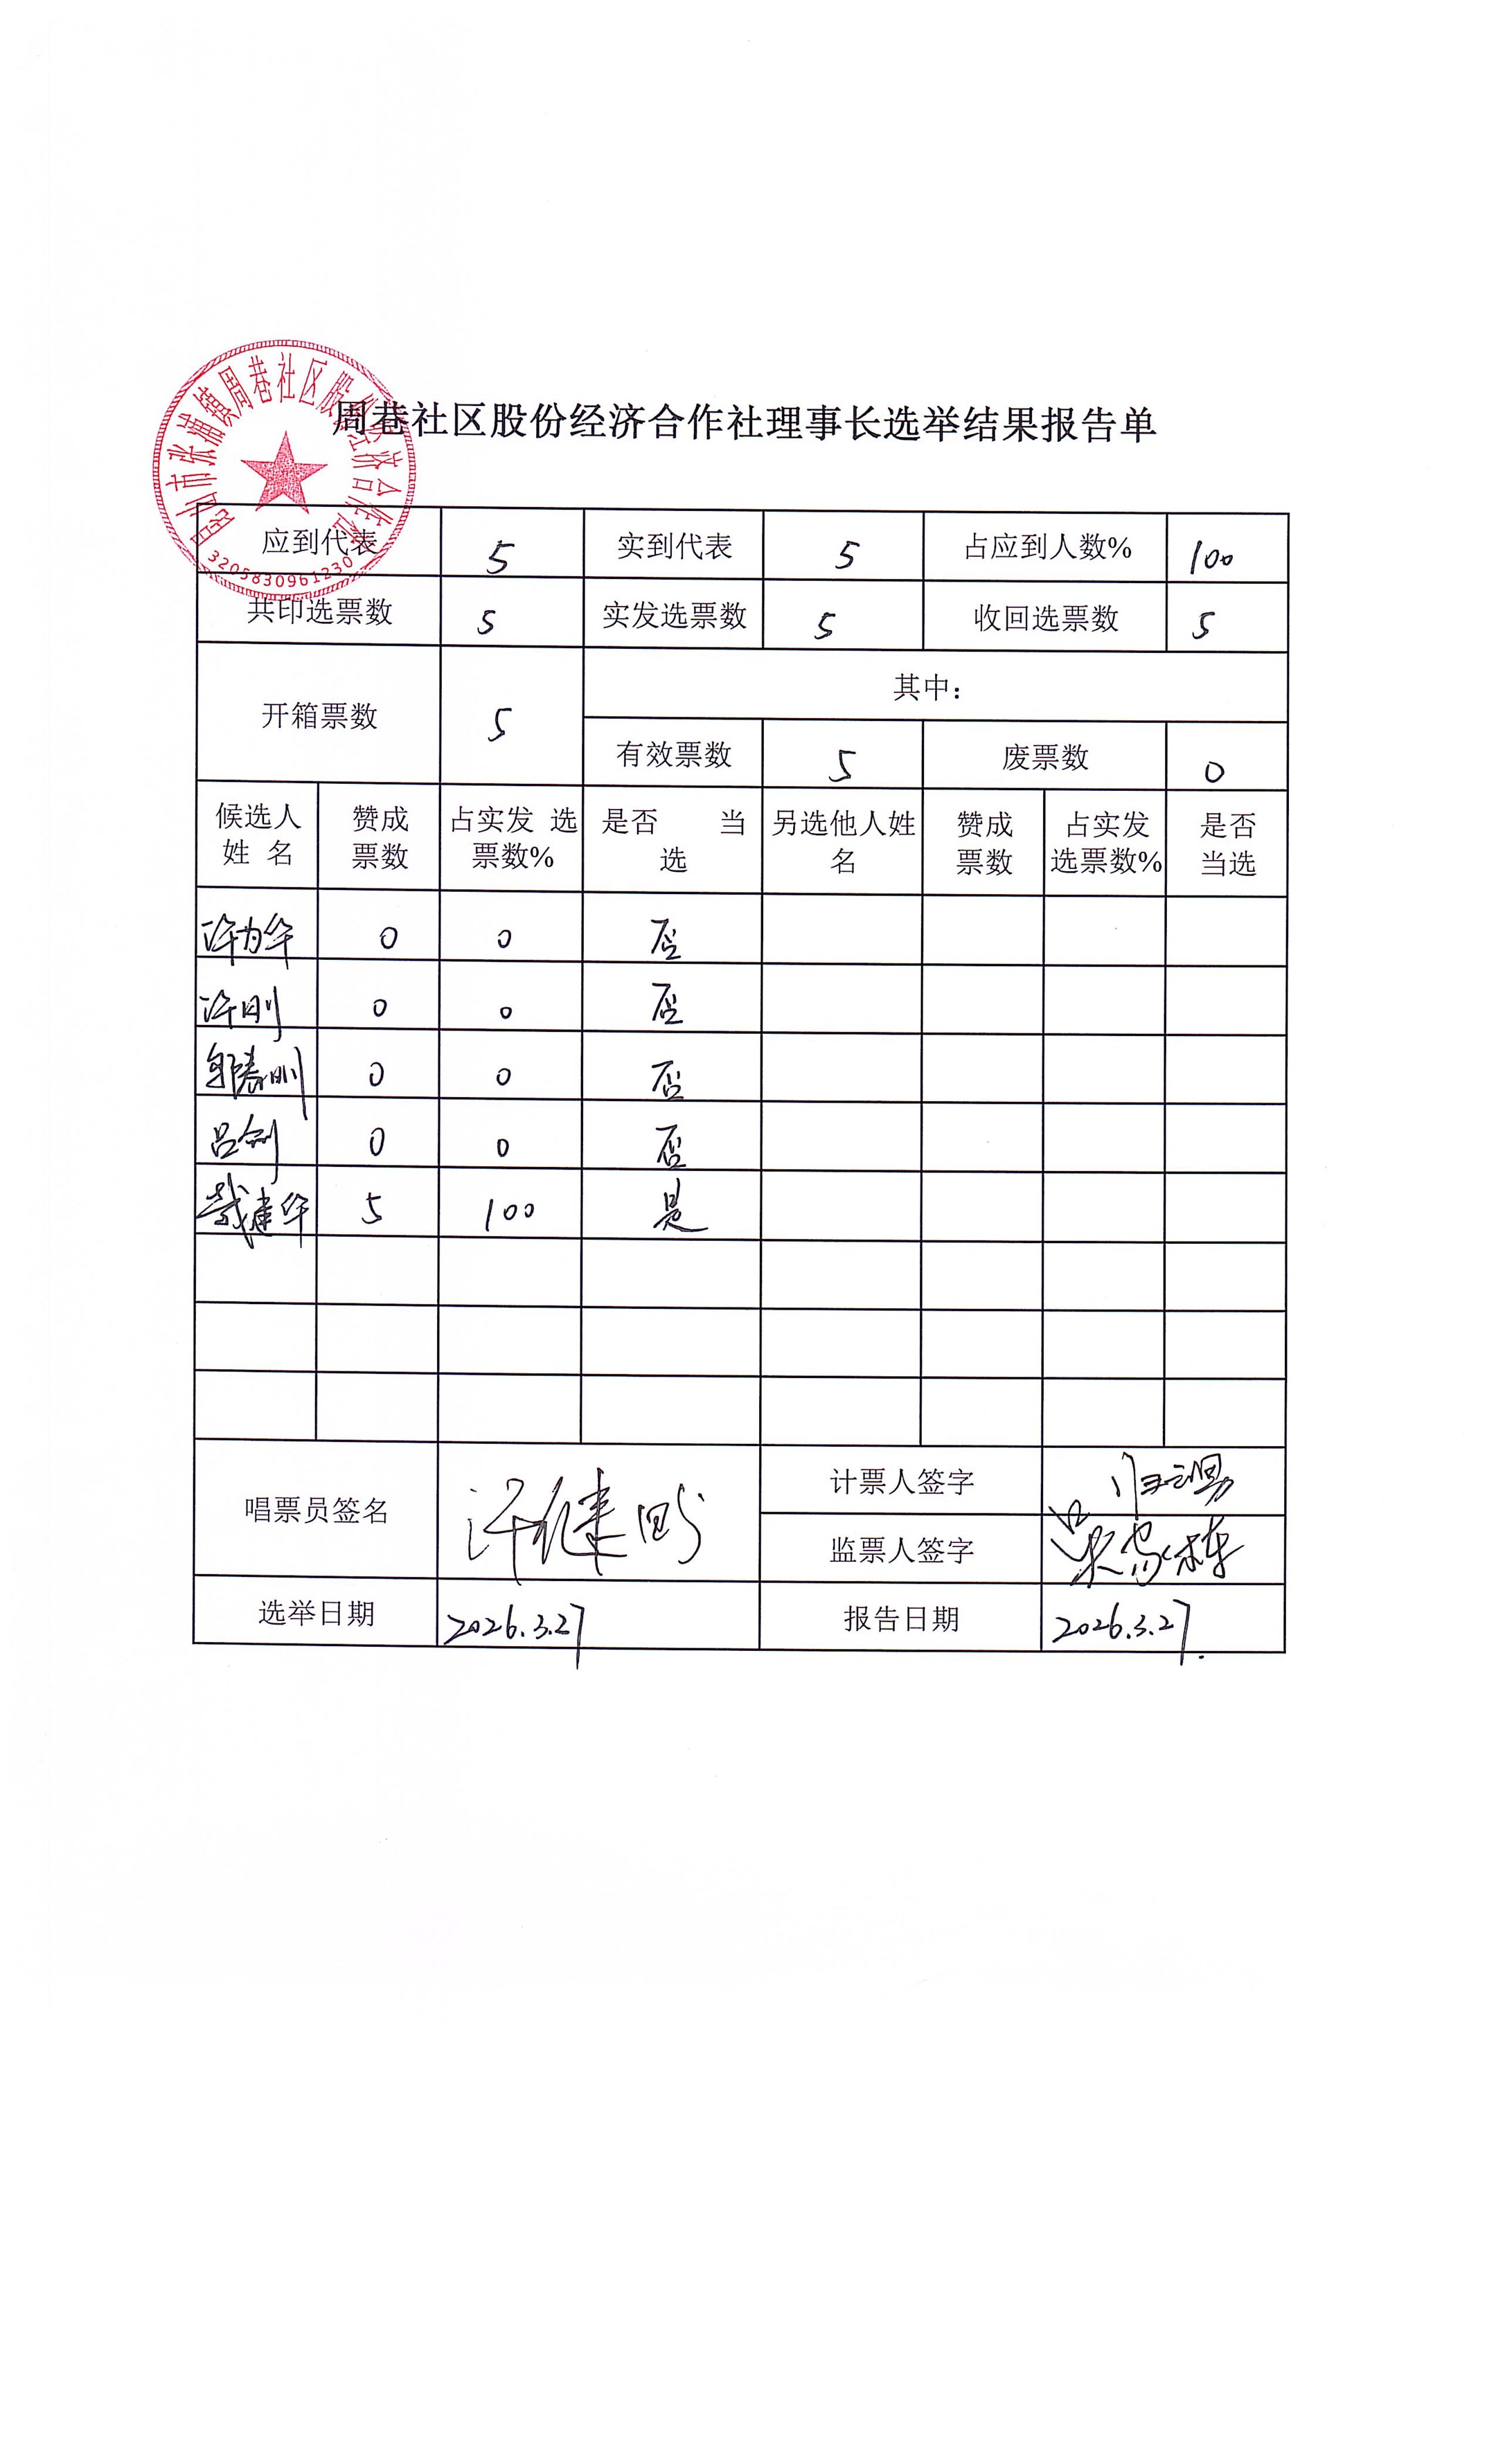 昆山市张浦镇周巷社区股份经济合作社
3205830961230
周巷社区股份经济合作社理事长选举结果报告单
应到代表 5 实到代表 5 占应到人数% 100
共印选票数 5 实发选票数 5 收回选票数 5
开箱票数 5 其中:
有效票数 5 废票数 0
候选人 赞成 占实发 选 是否 当 另选他人姓 赞成 占实发 是否
姓 名 票数 票数% 选 名 票数 选票数% 当选
许为华 0 0 否
许刚 0 0 否
郭春刚 0 0 否
吕剑 0 0 否
戴建华 5 100 是
唱票员签名 许健 计票人签字
监票人签字
选举日期 2026.3.27 报告日期 2026.3.27.